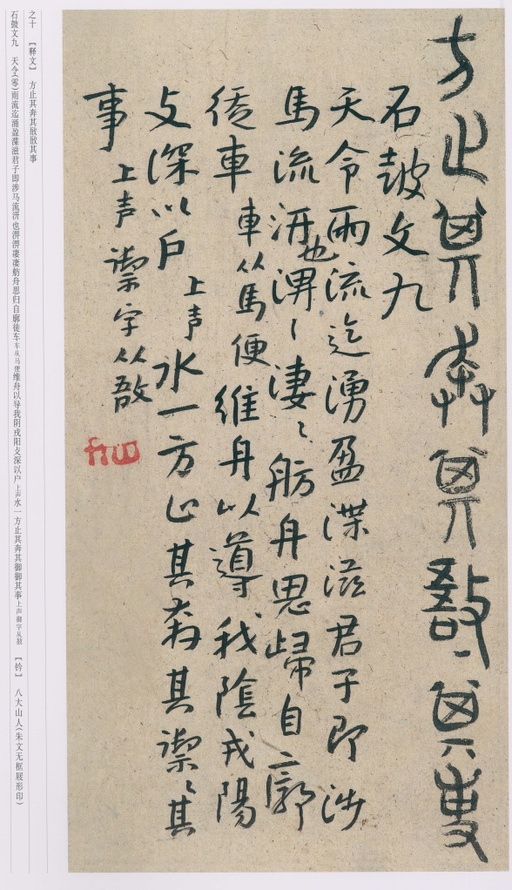 方止其奔其敔〻其事
石鼓文九
天令雨流迄湧盈渫滋君子即涉
馬流汧也淠〻淒〻舫舟思歸自廓
徒車車从馬便維舟以導我陰戎陽
攴深以戶上声水一方止其奔其禦〻其
事上声禦字从敔
之十 【释文】 方止其奔其敔敔其事
石鼓文九 天令(零)雨流迄涌盈渫滋君子即涉马流汧也淠淠凄凄舫舟思归自廓徒车车从马便维舟以导我阴戎阳攴深以户上声水一方止其奔其御御其事上声御字从敔 【钤】 八大山人(朱文无框屐形印)